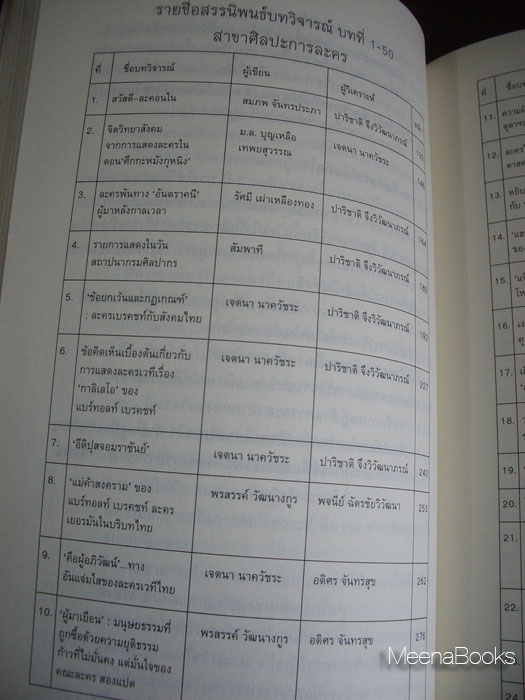 รายชื่อสรรนิพนธ์บทวิจารณ์ บทที่ 1-50
สาขาศิลปะการละคร
ที่ ชื่อบทวิจารณ์ ผู้เขียน ผู้วิเคราะห์ หน้า
1. สวัสดี-ละคอนใน สมภพ จันทรประภา ปาริชาติ จึงวิวัฒนาภรณ์
2. จิตวิทยาสังคม ม.ล. บุญเหลือ เจตนา นาควัชระ
จากการแสดงละครใน เทพยสุวรรณ
ตอน'ศึกกะหมังกุหนิง'
3. ละครพันทาง 'อันตราคนี' รัศมี เผ่าเหลืองทอง ปาริชาติ จึงวิวัฒนาภรณ์ 164
ผู้มาหลังกาลเวลา
4. รายการแสดงในวัน สัมพาที ปาริชาติ จึงวิวัฒนาภรณ์ 180
สถาปนากรมศิลปากร
5. 'ข้อยกเว้นและกฎเกณฑ์' เจตนา นาควัชระ ปาริชาติ จึงวิวัฒนาภรณ์ 192
: ละครเบรคชท์กับสังคมไทย
6. ข้อคิดเห็นเบื้องต้นเกี่ยวกับ เจตนา นาควัชระ ปาริชาติ จึงวิวัฒนาภรณ์ 227
การแสดงละครเวทีเรื่อง
'กาลิเลโอ' ของ
แบร์ทอลท์ เบรคชท์
7. 'อีดิปุสจอมราชันย์' เจตนา นาควัชระ ปาริชาติ จึงวิวัฒนาภรณ์ 240
8. 'แม่ค้าสงคราม' ของ พรสรรค์ วัฒนางกูร พจนีย์ ฉัตรชัยวิวัฒนา 253
แบร์ทอลท์ เบรคชท์ ละคร
เยอรมันในบริบทไทย
9. 'คือผู้อภิวัฒน์'...ทาง เจตนา นาควัชระ อดิศร จันทรสุข 262
อันแจ่มใสของละครเวทีไทย
10. 'ผู้มาเยือน' : มนุษยธรรมที่ พรสรรค์ วัฒนางกูร อดิศร จันทรสุข 276
ถูกซื้อด้วยความยุติธรรม
ก้าวที่ไม่มั่นคง แต่มั่นใจของ
คณะละคร สองแปด
ที่
11.
12.
13.
14.
15.
16.
17.
18.
19.
20.
21.
22.
24.
MeenaBooks